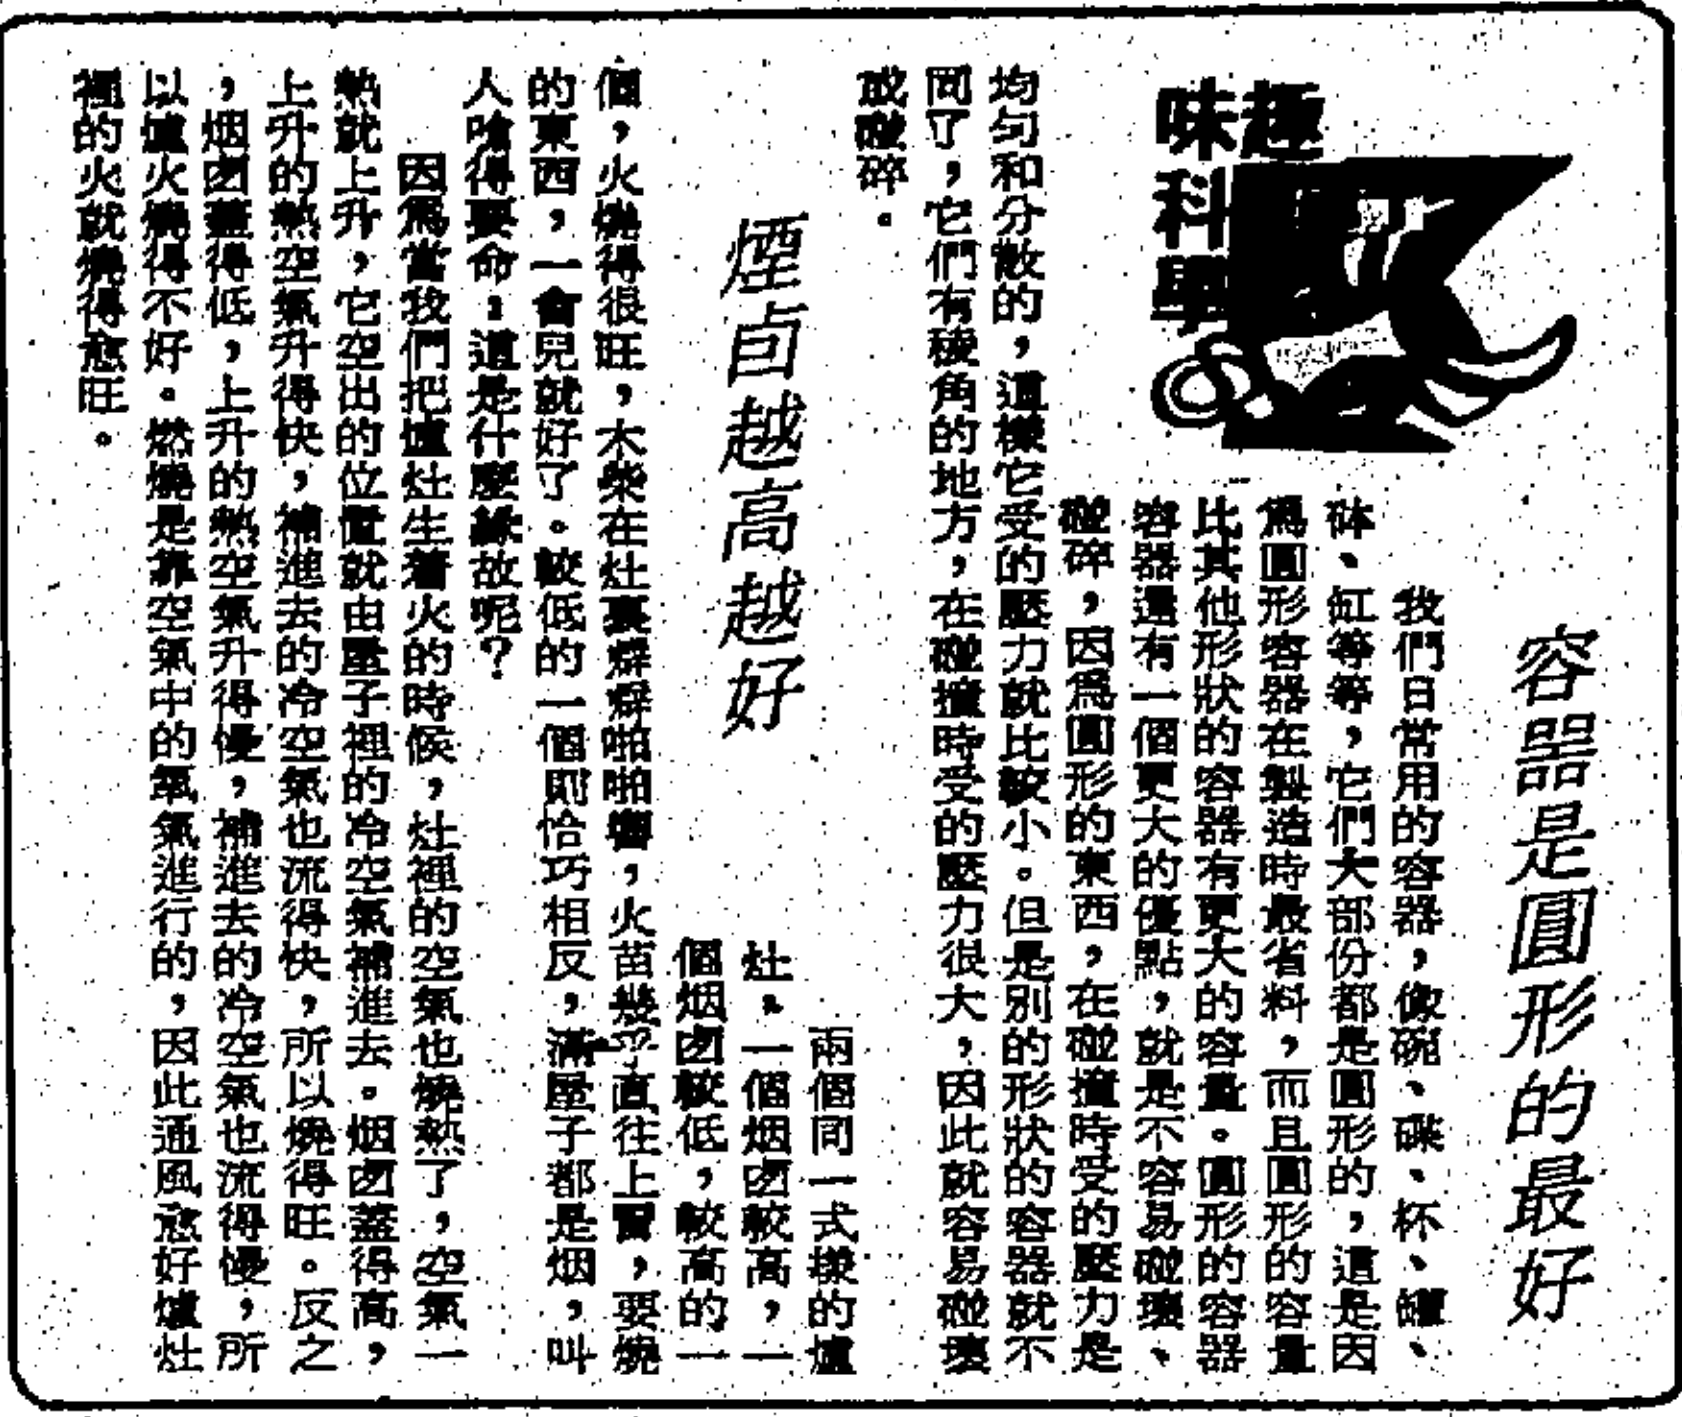 趣味
科學
容器是圓形的最好
我們日常用的容器，像碗、碟、杯、罐、
砵、缸等等，它們大部份都是圓形的，這是因
爲圓形容器在製造時最省料，而且圓形的容量
比其他形狀的容器有更大的容量。圓形的容器
容器還有一個更大的優點，就是不容易碰壞、
碰碎，因爲圓形的東西，在碰撞時受的壓力是
均勻和分散的，這樣它受的壓力就比較小。但是別的形狀的容器就不
同了，它們有稜角的地方，在碰撞時受的壓力很大，因此就容易碰壞
或碰碎。
煙囱越高越好
兩個同一式樣的爐
灶，一個烟囱較高，一
個烟囱較低，較高的一
個，火燒得很旺，木柴在灶裏噼噼啪啪響，火苗幾乎直往上冒，要燒
的東西，一會兒就好了。較低的一個則恰巧相反，滿屋子都是烟，叫
人嗆得要命；這是什麼緣故呢？
因爲當我們把爐灶生着火的時候，灶裡的空氣也燒熱了，空氣一
熱就上升，它空出的位置就由屋子裡的冷空氣補進去。烟囱蓋得高，
上升的熱空氣升得快，補進去的冷空氣也流得快，所以燒得旺。反之
，烟囱蓋得低，上升的熱空氣升得慢，補進去的冷空氣也流得慢，所
以爐火燒得不好。燃燒是靠空氣中的氧氣進行的，因此通風愈好爐灶
裡的火就燒得愈旺。